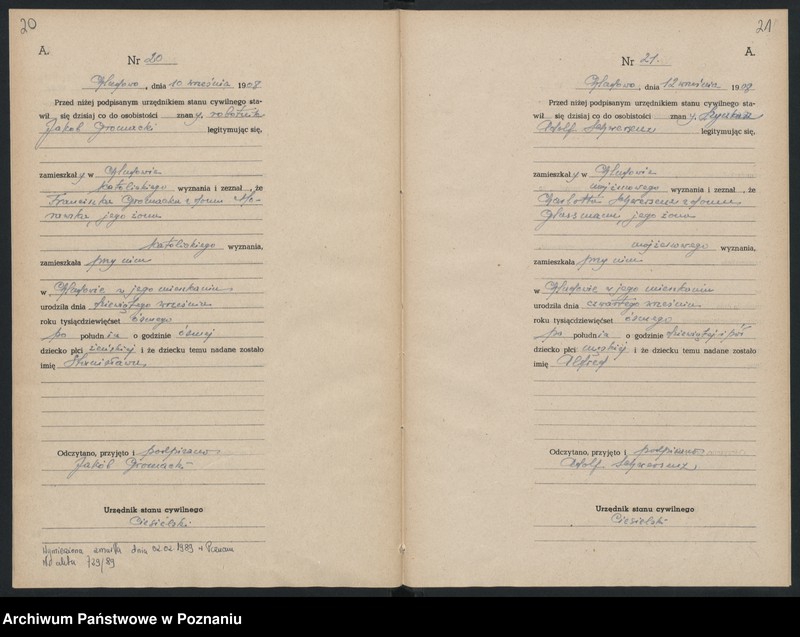 20
A.
Nr 20
, dnia 10 września 1908
Przed niżej podpisanym urzędnikiem stanu cywilnego sta-
wił się dzisiaj co do osobistości znany, robotnik
Jakob legitymując się,
zamieszkały w
katolickiego wyznania i zeznał, że
z domu
jego żona
katolickiego wyznania,
zamieszkała przy nim
w w jego mieszkaniu
urodziła dnia dziewiątego września
roku tysiącdziewięćset ósmego
po południu o godzinie ósmej
dziecko płci żeńskiej i że dziecku temu nadane zostało
imię Stanisława
Odczytano, przyjęto i podpisano
Jakób
Urzędnik stanu cywilnego
Ciesielski
Wymieniona zmarła dnia 02.02.1989 w Poznaniu
Nr aktu 729/89
21
A.
Nr 21
, dnia 12 września 1908
Przed niżej podpisanym urzędnikiem stanu cywilnego sta-
wił się dzisiaj co do osobistości znany,
Adolf legitymując się,
zamieszkały w
mojżeszowego wyznania i zeznał, że
z domu
jego żona
mojżeszowego wyznania,
zamieszkała przy nim
w w jego mieszkaniu
urodziła dnia czwartego września
roku tysiącdziewięćset ósmego
po południu o godzinie dziewiątej i pół
dziecko płci męskiej i że dziecku temu nadane zostało
imię Alfred
Odczytano, przyjęto i podpisano
Adolf
Urzędnik stanu cywilnego
Ciesielski
Archiwum Państwowe w Poznaniu